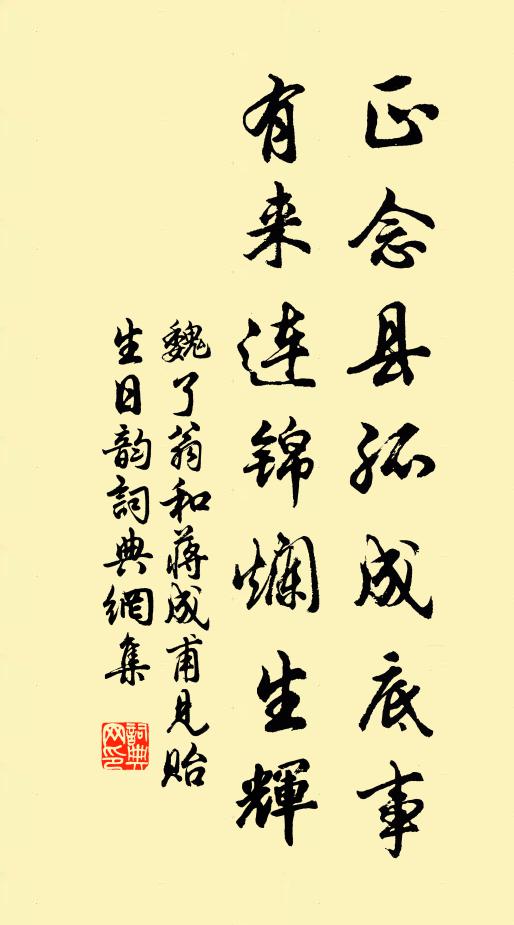 正念县孤成底事
有来连锦烂生辉
魏了翁和蒋成甫见贻
生日韵詞典網集
詞典
网印